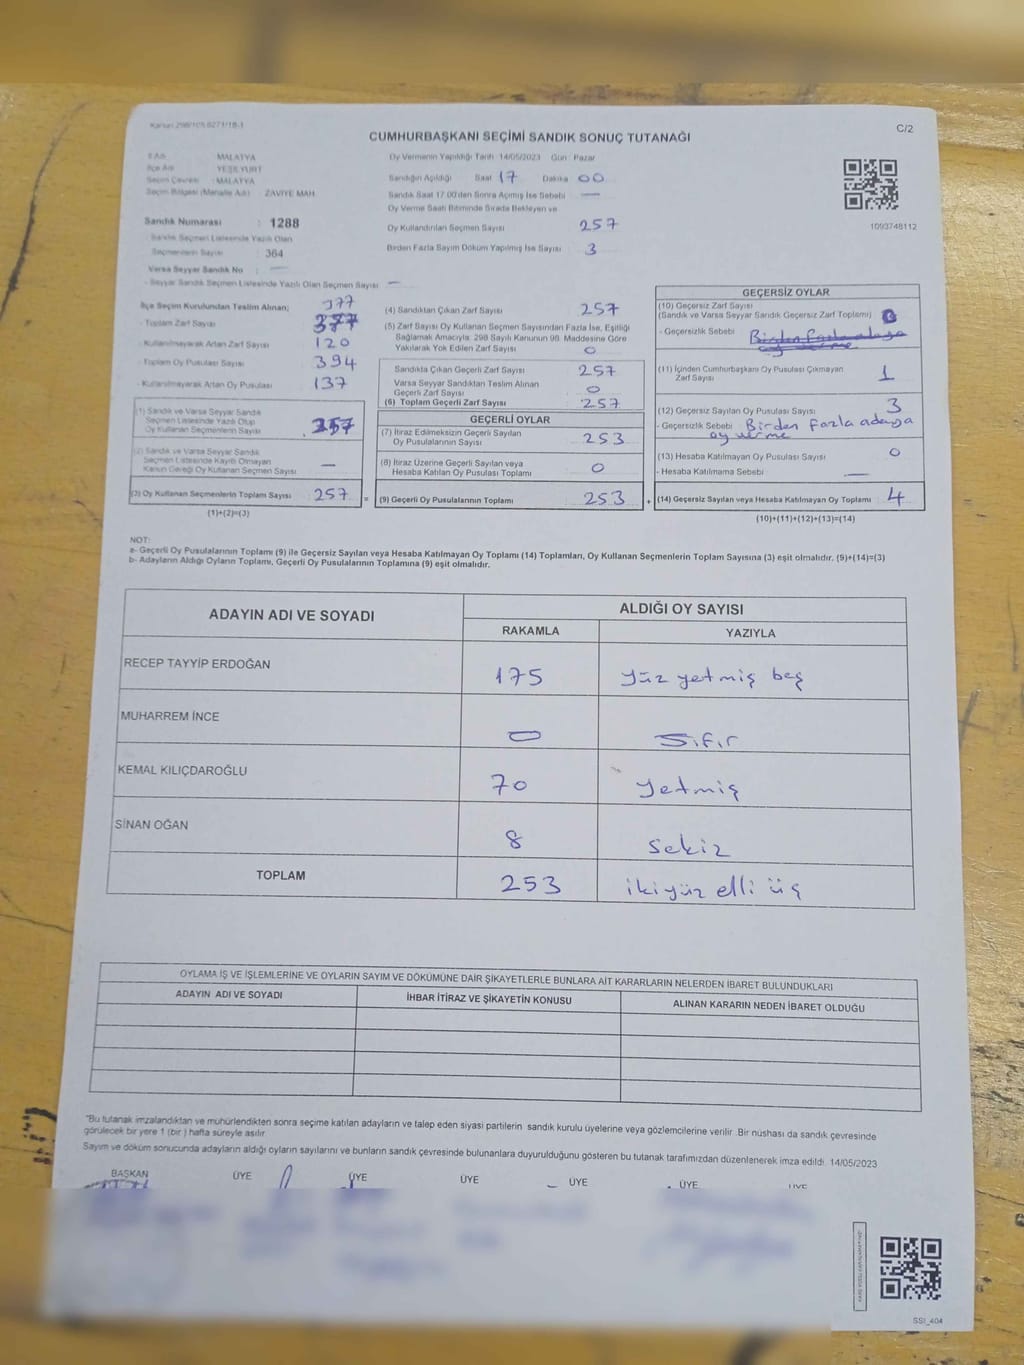 Kanun 298/105,6271/18-1
CUMHURBAŞKANI SEÇİMİ SANDIK SONUÇ TUTANAĞI
C/2
İl Adı : MALATYA
İlçe Adı : YEŞİLYURT
Seçim Çevresi : MALATYA
Seçim Bölgesi (Mahalle Adı) : ZAVİYE MAH.
Sandık Numarası : 1288
Sandık Seçmen Listesinde Yazılı Olan
Seçmenlerin Sayısı : 364
Varsa Seyyar Sandık No : —
- Seyyar Sandık Seçmen Listesinde Yazılı Olan Seçmen Sayısı —
Oy Vermenin Yapıldığı Tarih 14/05/2023 Gün : Pazar
Sandığın Açıldığı Saat 17 Dakika 00
Sandık Saat 17.00'den Sonra Açılmış İse Sebebi —
Oy Verme Saati Bitiminde Sırada Bekleyen ve
Oy Kullandırılan Seçmen Sayısı 257
Birden Fazla Sayım Döküm Yapılmış İse Sayısı 3
1093748112
İlçe Seçim Kurulundan Teslim Alınan; 377
- Toplam Zarf Sayısı 377
- Kullanılmayarak Artan Zarf Sayısı 120
- Toplam Oy Pusulası Sayısı 394
- Kullanılmayarak Artan Oy Pusulası 137
(1) Sandık ve Varsa Seyyar Sandık
Seçmen Listesinde Yazılı Olup
Oy Kullanan Seçmenlerin Sayısı 257
(2) Sandık ve Varsa Seyyar Sandık
Seçmen Listesinde Kayıtlı Olmayan
Kanun Gereği Oy Kullanan Seçmen Sayısı —
(3) Oy Kullanan Seçmenlerin Toplam Sayısı 257 =
(1)+(2)=(3)
(4) Sandıktan Çıkan Zarf Sayısı 257
(5) Zarf Sayısı Oy Kullanan Seçmen Sayısından Fazla İse, Eşitliği
Sağlamak Amacıyla; 298 Sayılı Kanunun 98. Maddesine Göre
Yakılarak Yok Edilen Zarf Sayısı 0
Sandıkta Çıkan Geçerli Zarf Sayısı 257
Varsa Seyyar Sandıktan Teslim Alınan
Geçerli Zarf Sayısı 0
(6) Toplam Geçerli Zarf Sayısı 257
GEÇERLİ OYLAR
(7) İtiraz Edilmeksizin Geçerli Sayılan
Oy Pusulalarının Sayısı 253
(8) İtiraz Üzerine Geçerli Sayılan veya
Hesaba Katılan Oy Pusulası Toplamı 0
(9) Geçerli Oy Pusulalarının Toplamı 253 +
GEÇERSİZ OYLAR
(10) Geçersiz Zarf Sayısı
(Sandık ve Varsa Seyyar Sandık Geçersiz Zarf Toplamı)
- Geçersizlik Sebebi Birden fazla adaya
oy verme
(11) İçinden Cumhurbaşkanı Oy Pusulası Çıkmayan
Zarf Sayısı 1
(12) Geçersiz Sayılan Oy Pusulası Sayısı 3
- Geçersizlik Sebebi Birden fazla adaya
oy verme
(13) Hesaba Katılmayan Oy Pusulası Sayısı 0
- Hesaba Katılmama Sebebi —
(14) Geçersiz Sayılan veya Hesaba Katılmayan Oy Toplamı 4
(10)+(11)+(12)+(13)=(14)
NOT:
a- Geçerli Oy Pusulalarının Toplamı (9) ile Geçersiz Sayılan veya Hesaba Katılmayan Oy Toplamı (14) Toplamları, Oy Kullanan Seçmenlerin Toplam Sayısına (3) eşit olmalıdır. (9)+(14)=(3)
b- Adayların Aldığı Oyların Toplamı, Geçerli Oy Pusulalarının Toplamına (9) eşit olmalıdır.
ADAYIN ADI VE SOYADI ALDIĞI OY SAYISI
RAKAMLA YAZIYLA
RECEP TAYYİP ERDOĞAN 175 yüz yetmiş beş
MUHARREM İNCE 0 Sıfır
KEMAL KILIÇDAROĞLU 70 yetmiş
SİNAN OĞAN 8 sekiz
TOPLAM 253 iki yüz elli üç
OYLAMA İŞ VE İŞLEMLERİNE VE OYLARIN SAYIM VE DÖKÜMÜNE DAİR ŞİKAYETLERLE BUNLARA AİT KARARLARIN NELERDEN İBARET BULUNDUKLARI
ADAYIN ADI VE SOYADI İHBAR İTİRAZ VE ŞİKAYETİN KONUSU ALINAN KARARIN NEDEN İBARET OLDUĞU
"Bu tutanak imzalandıktan ve mühürlendikten sonra seçime katılan adayların ve talep eden siyasi partilerin sandık kurulu üyelerine veya gözlemcilerine verilir .Bir nüshası da sandık çevresinde
görülecek bir yere 1 (bir ) hafta süreyle asılır.
Sayım ve döküm sonucunda adayların aldığı oyların sayılarını ve bunların sandık çevresinde bulunanlara duyurulduğunu gösteren bu tutanak tarafımızdan düzenlenerek imza edildi. 14/05/2023
BAŞKAN ÜYE ÜYE ÜYE ÜYE ÜYE ÜYE
SSI_404